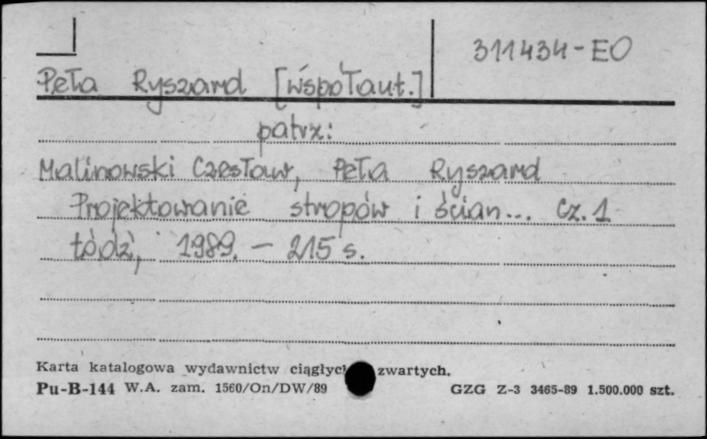 311434-EO
Peła Ryszard [współaut.]
patrz:
Malinowski Czesław, Peła Ryszard
Projektowanie stropów i ścian... cz. 1
Łódź, 1989. – 215 s.
Karta katalogowa wydawnictw ciągłyc zwartych.
Pu-B-144 W.A. zam. 1560/On/DW/89 GZG Z-3 3465-89 1.500.000 szt.